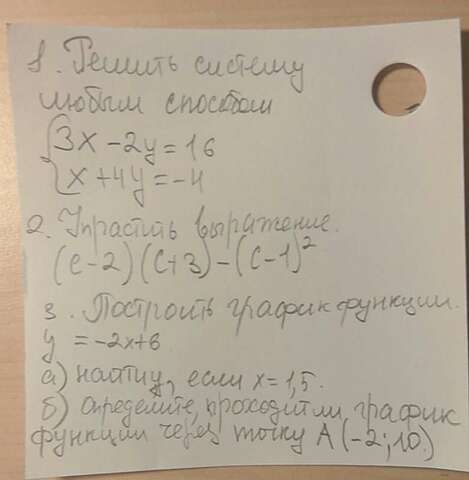 1. Решить систему
любым способом
3x - 2y = 16
x + 4y = -4
2. Упрастить выражение.
(c - 2) (c + 3) - (c - 1)²
3. Построить график функции.
y = -2x+6
а) найти y, если x = 1,5.
б) определите, проходит ли график
функции через точку A (-2; 10.)